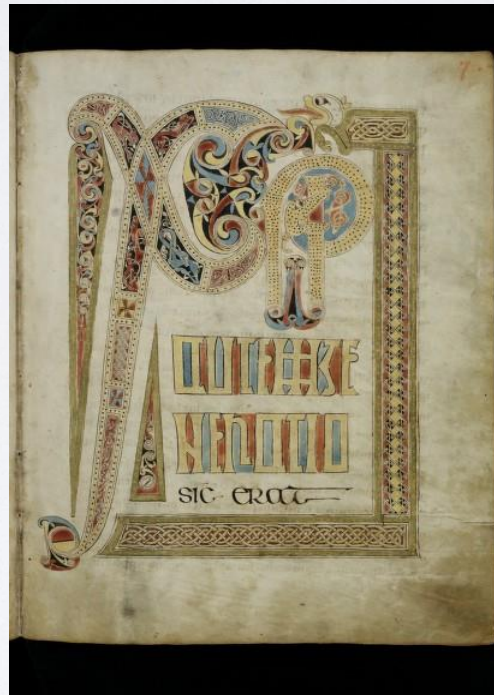 7
XP
AUTEM GE
NERATIO
SIC ERAT